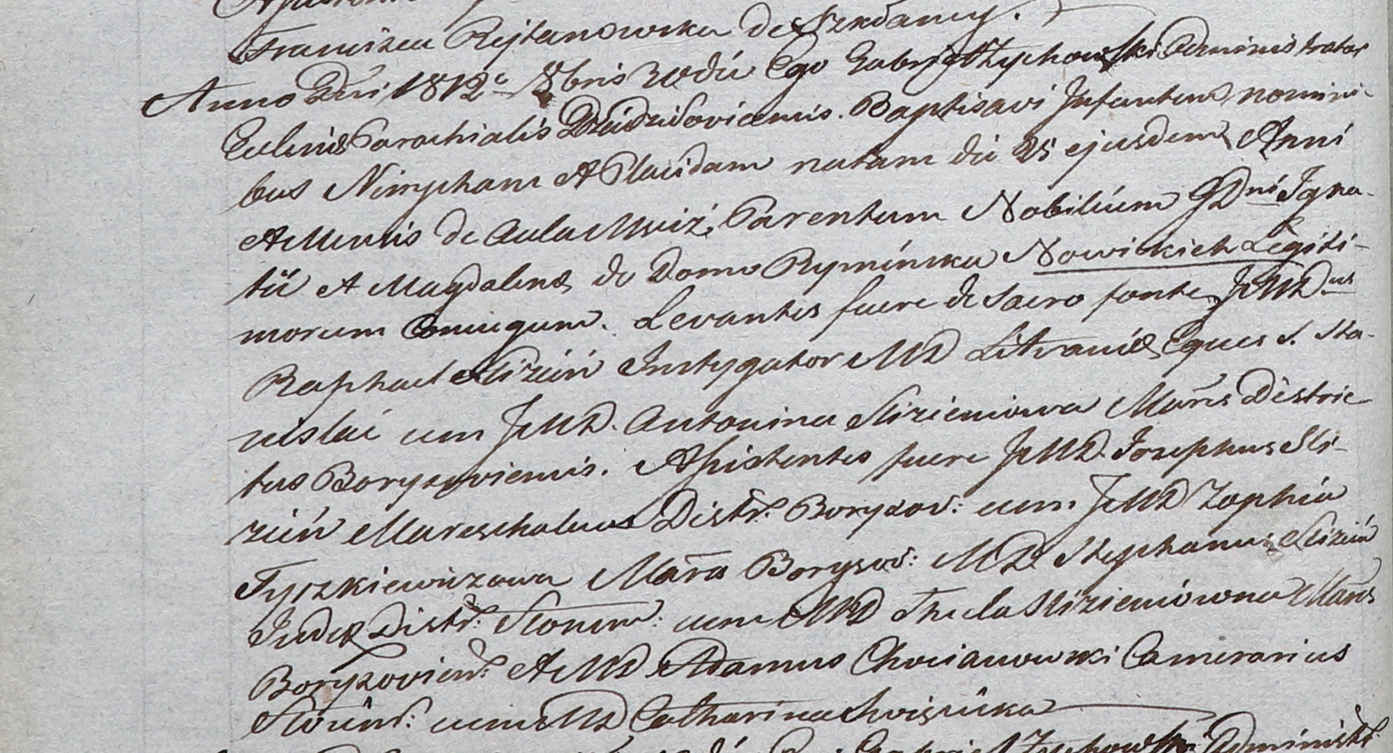 Francisca Rejtanowska de Szkdancy.
Anno Dni 1812c 8bris 30 diu Ego Gabriel Zychowski Administrator
Eclniæ Parochialis Dziedzilovicensis. Baptisavi Infantem nomini-
bus Nimpham et Placidam natam die 25 ejusdem Anni
et Mensis de Aula Mniz, Parentum Nobilium GDni Igna-
tii et Magdalenæ de Domo Rymińska Nowickich Legiti-
morum Coniugum. Levantes fuere de Sacro fonte JMD us
Raphael Slizień Instygator MD Litvaniæ Eques S. Sta-
nislai cum JMD. Antonina Slizieniowa Mars Distric
tus Borysoviensis. Assistentes fuere JMD. Josephus Sli-
zień Mareschalcus Distr. Borysov: cum JMD Zophia
Tyszkiewiczowa Mara Borysov: MD. Stephanus Slizień
Judex Distr. Slonim: cum MD Thecla Slizieniówna Mars
Borysovien. et MD Adamus Chrcianowski Camerarius
Slonim: cum MD Catharina
Gabriel Zychowski Administr